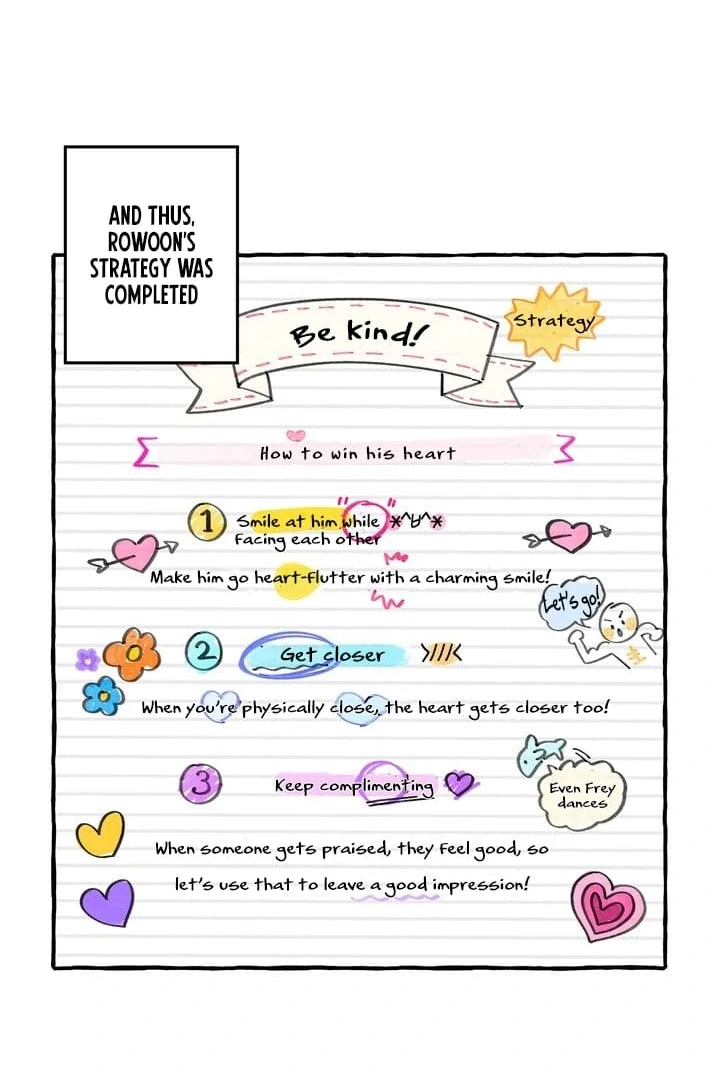 AND THUS,
ROWOON'S
STRATEGY WAS
COMPLETED
Be kind!
Strategy
How to win his heart
1 Smile at him while *^ㅂ^*
Facing each other
Make him go heart-flutter with a charming smile!
Let's go!
2 Get closer
When you're physically close, the heart gets closer too!
3 Keep complimenting
Even Frey
dances
When someone gets praised, they feel good, so
let's use that to leave a good impression!